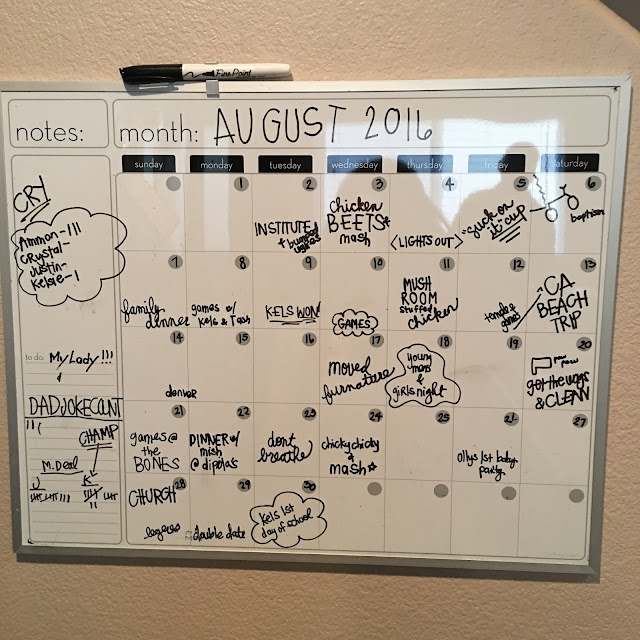 Fine Point
notes:
month: AUGUST 2016
sunday monday tuesday wednesday thursday friday saturday
CRY
Ammon-III
Crystal-
Justin-
Kelsie-I
to do: My Lady!!!
DAD JOKE COUNT
CHAMP
M. Deal
J K
1
2
INSTITUTE
3
chicken
BEETS
mash
4
<LIGHTS OUT>
5
suck on
it cup
6
baptism
7
family
dinner
8
games w/
Kels & Tash
9
KELS WON!
10
GAMES
11
MUSH
ROOM
stuffed
chicken
12
temple &
games
13
CA
BEACH
TRIP
14
15
denver
16
17
moved
furnature
18
young
mens
&
girls night
19
20
pew
pew
got the wags
& CLEAN
21
games @
the
BONES
22
DINNER w/
mish
@ dipola's
23
dont
breathe
24
chicky chicky
&
mash
25
26
ollys 1st baby
party
27
28
CHURCH
29
double date
30
Kels 1st
day of school